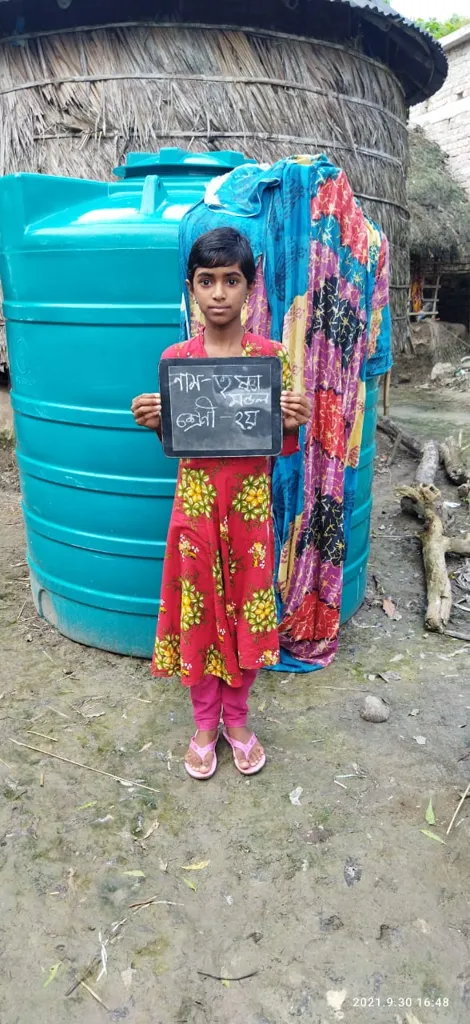 নাম-তৃষ্ণা
মন্ডল
শ্রেণী-২য়
2021.9.30 16:48